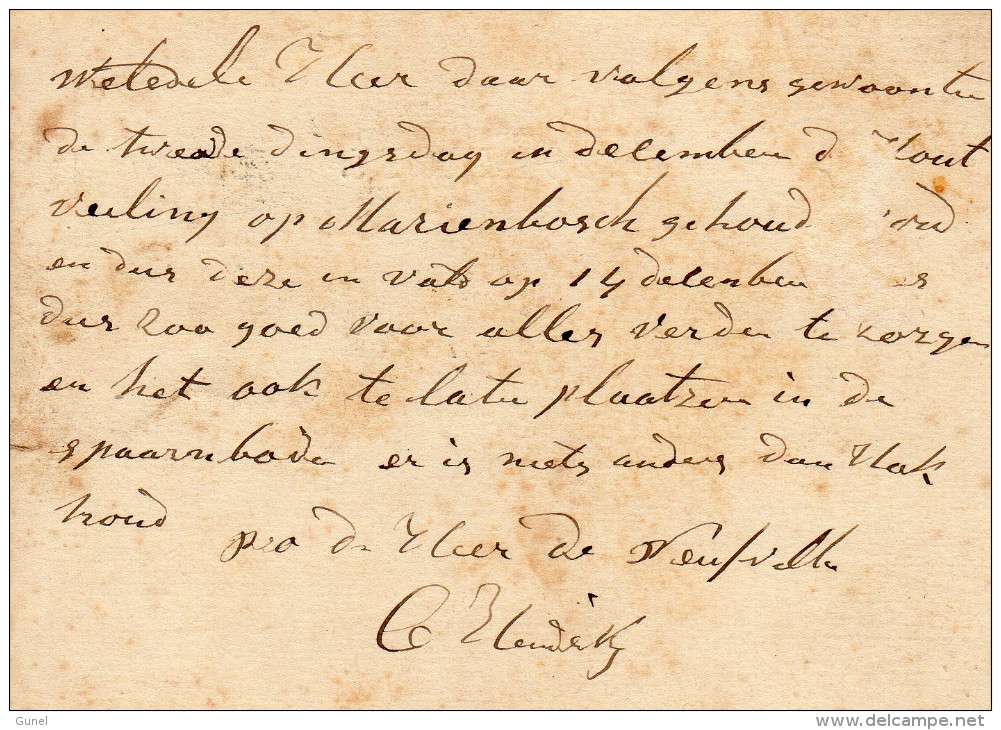 Weledele Heer daar volgens gewoonte
de tweede dingsdag in december d Hout
veiling op Marienbosch gehoud rd
en dus deze in valt op 14 december es
dus zoo goed voor alles verder te zorgen
en het ook te laten plaatzen in de
spaarnbode er is niets anders dan Hak
houd
pro de Heer de Neufville
C Hendriks
Gunel
delcampe.net